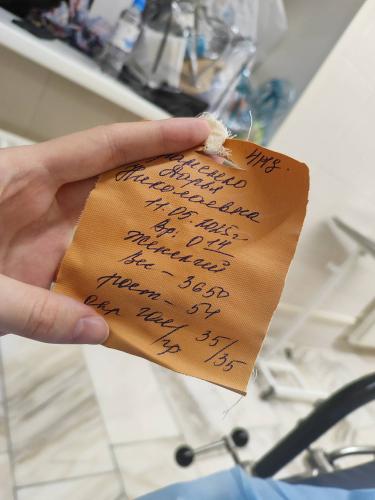 444з.
Дарья
Николаевна
11.05.2025г.
Вр. 0 14
Женский
Вес - 3650
рост - 54
окр гол/гр 35/35